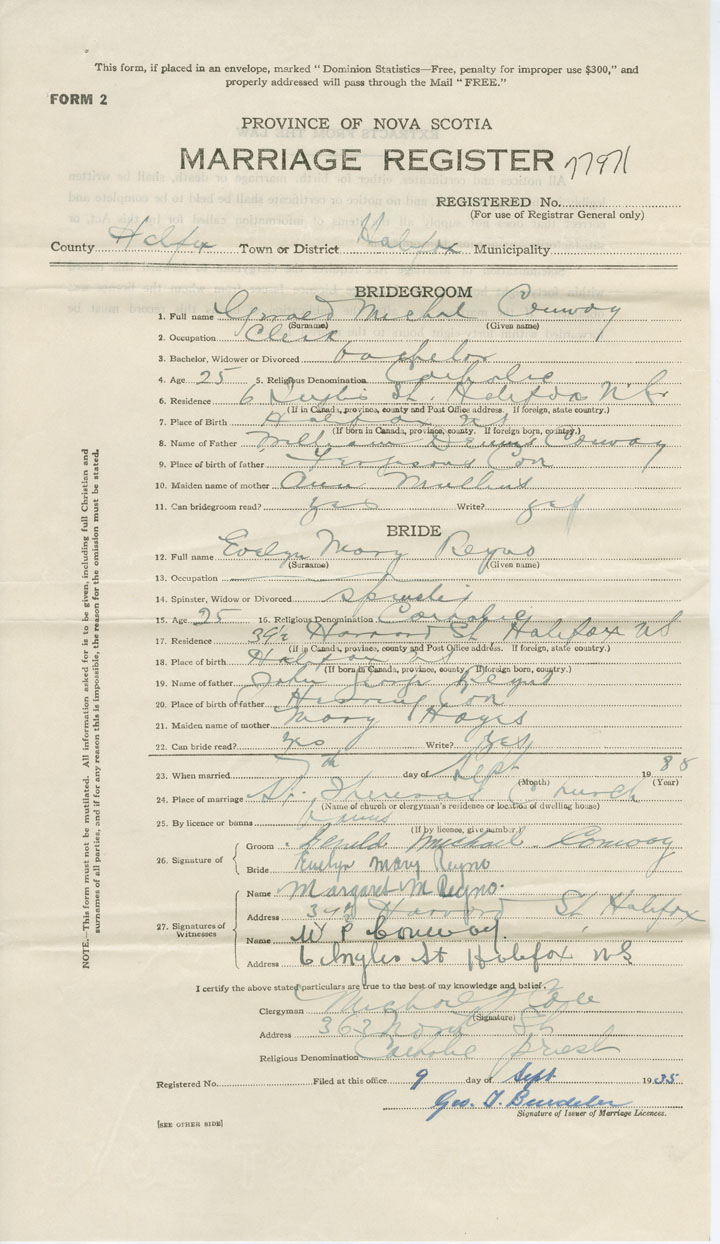 This form, if placed in an envelope, marked "Dominion Statistics—Free, penalty for improper use $300," and
properly addressed will pass through the Mail "FREE."
FORM 2
PROVINCE OF NOVA SCOTIA
MARRIAGE REGISTER
REGISTERED No.
(For use of Registrar General only)
County Halifax Town or District Halifax Municipality
BRIDEGROOM
1. Full name Gerald Michael Conway
(Surname) (Given name)
2. Occupation Clerk
3. Bachelor, Widower or Divorced bachelor
4. Age 25 5. Religious Denomination Catholic
6. Residence 6 Inglis St. Halifax N.S.
(If in Canada, province, county and Post Office address. If foreign, state country.)
7. Place of Birth Halifax NS
(If born in Canada, province, county. If foreign born, country.)
8. Name of Father William Dennis Conway
9. Place of birth of father
10. Maiden name of mother Ann Mullins
11. Can bridegroom read? yes Write? yes
BRIDE
12. Full name Evelyn Mary Reyno
(Surname) (Given name)
13. Occupation
14. Spinster, Widow or Divorced spinster
15. Age 25 16. Religious Denomination Catholic
17. Residence 39½ Harvard St Halifax NS
(If in Canada, province, county and Post Office address. If foreign, state country.)
18. Place of birth Halifax NS
(If born in Canada, province, county, If foreign born, country.)
19. Name of father John George Reyno
20. Place of birth of father
21. Maiden name of mother Mary Hayes
22. Can bride read? Yes Write? Yes
23. When married 7th day of Sept 19
(Month) (Year)
24. Place of marriage St. Theresas Church
(Name of church or clergyman's residence or location of dwelling house)
25. By licence or banns banns
(If by licence, give number)
26. Signature of
Groom Gerald Michael Conway
Bride Evelyn Mary Reyno
27. Signatures of Witnesses
Name Margaret M Reyno.
Address 39½ Harvard St, Halifax
Name W P Conway.
Address 6 Inglis St Halifax NS
I certify the above stated particulars are true to the best of my knowledge and belief.
Clergyman Michael
(Signature)
Address 363 North St
Religious Denomination Catholic Priest
Registered No. Filed at this office 9 day of Sept 1935
Geo. T.
Signature of Issuer of Marriage Licences.
[SEE OTHER SIDE]
NOTE.—This form must not be mutilated. All information asked for is to be given, including full Christian and
surnames of all parties, and if for any reason this is impossible, the reason for the omission must be stated.